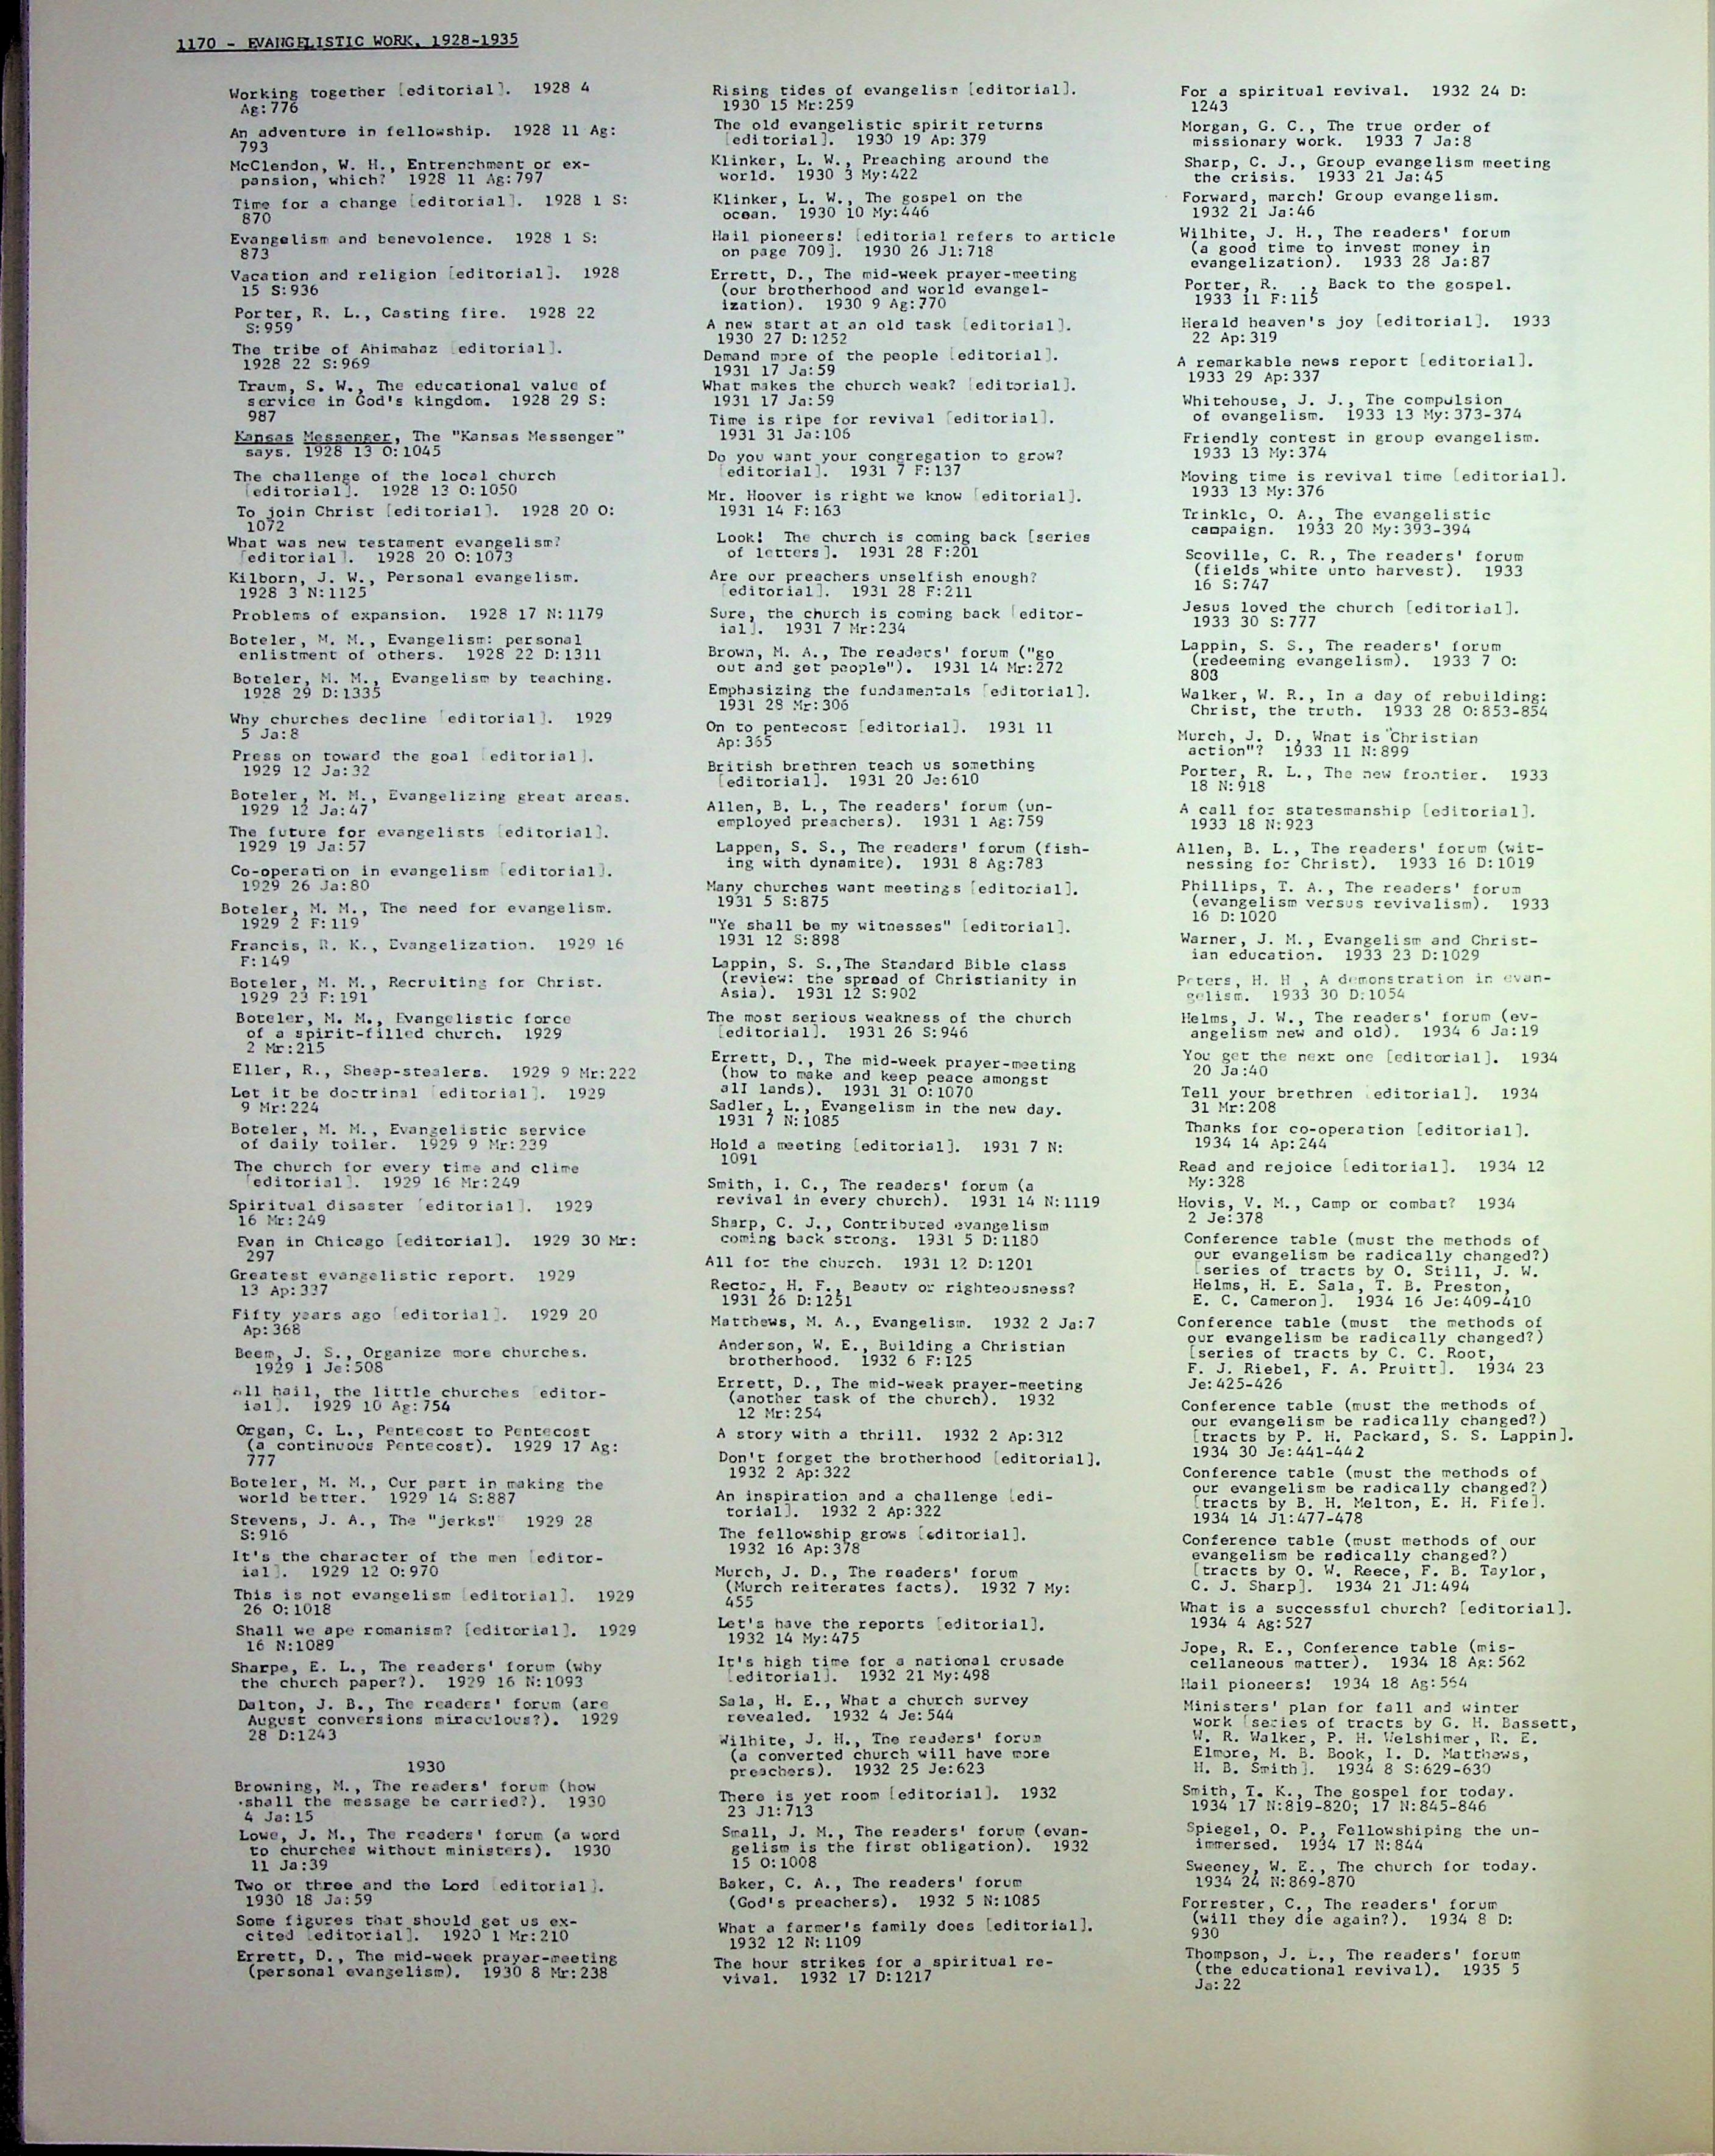 1170 - EVANGELISTIC WORK, 1928-1935
Working together [editorial]. 1928 4
Ag:776
An adventure in fellowship. 1928 11 Ag:
793
McClendon, W. H., Entrenchment or ex-
pansion, which? 1928 11 Ag:797
Time for a change [editorial]. 1928 1 S:
870
Evangelism and benevolence. 1928 1 S:
873
Vacation and religion [editorial]. 1928
15 S:936
Porter, R. L., Casting fire. 1928 22
S:959
The tribe of Ahimahaz [editorial].
1928 22 S:969
Traum, S. W., The educational value of
service in God's kingdom. 1928 29 S:
987
Kansas Messenger, The "Kansas Messenger"
says. 1928 13 O:1045
The challenge of the local church
[editorial]. 1928 13 O:1050
To join Christ [editorial]. 1928 20 O:
1072
What was new testament evangelism?
[editorial]. 1928 20 O:1073
Kilborn, J. W., Personal evangelism.
1928 3 N:1125
Problems of expansion. 1928 17 N:1179
Boteler, M. M., Evangelism: personal
enlistment of others. 1928 22 D:1311
Boteler, M. M., Evangelism by teaching.
1928 29 D:1335
Why churches decline [editorial]. 1929
5 Ja:8
Press on toward the goal [editorial].
1929 12 Ja:32
Boteler, M. M., Evangelizing great areas.
1929 12 Ja:47
The future for evangelists [editorial].
1929 19 Ja:57
Co-operation in evangelism [editorial].
1929 26 Ja:80
Boteler, M. M., The need for evangelism.
1929 2 F:119
Francis, R. K., Evangelization. 1929 16
F:149
Boteler, M. M., Recruiting for Christ.
1929 23 F:191
Boteler, M. M., Evangelistic force
of a spirit-filled church. 1929
2 Mr:215
Eller, R., Sheep-stealers. 1929 9 Mr:222
Let it be doctrinal [editorial]. 1929
9 Mr:224
Boteler, M. M., Evangelistic service
of daily toiler. 1929 9 Mr:239
The church for every time and clime
[editorial]. 1929 16 Mr:249
Spiritual disaster [editorial]. 1929
16 Mr:249
Evan in Chicago [editorial]. 1929 30 Mr:
297
Greatest evangelistic report. 1929
13 Ap:337
Fifty years ago [editorial]. 1929 20
Ap:368
Beem, J. S., Organize more churches.
1929 1 Je:508
All hail, the little churches [editor-
ial]. 1929 10 Ag:754
Organ, C. L., Pentecost to Pentecost
(a continuous Pentecost). 1929 17 Ag:
777
Boteler, M. M., Our part in making the
world better. 1929 14 S:887
Stevens, J. A., The "jerks". 1929 28
S:916
It's the character of the men [editor-
ial]. 1929 12 O:970
This is not evangelism [editorial]. 1929
26 O:1018
Shall we ape romanism? [editorial]. 1929
16 N:1089
Sharpe, E. L., The readers' forum (why
the church paper?). 1929 16 N:1093
Dalton, J. B., The readers' forum (are
August conversions miraculous?). 1929
28 D:1243
1930
Browning, M., The readers' forum (how
shall the message be carried?). 1930
4 Ja:15
Lowe, J. M., The readers' forum (a word
to churches without ministers). 1930
11 Ja:39
Two or three and the Lord [editorial].
1930 18 Ja:59
Some figures that should get us ex-
cited [editorial]. 1920 1 Mr:210
Errett, D., The mid-week prayer-meeting
(personal evangelism). 1930 8 Mr:238
Rising tides of evangelism [editorial].
1930 15 Mr:259
The old evangelistic spirit returns
[editorial]. 1930 19 Ap:379
Klinker, L. W., Preaching around the
world. 1930 3 My:422
Klinker, L. W., The gospel on the
ocean. 1930 10 My:446
Hail pioneers! [editorial refers to article
on page 709]. 1930 26 Jl:718
Errett, D., The mid-week prayer-meeting
(our brotherhood and world evangel-
ization). 1930 9 Ag:770
A new start at an old task [editorial].
1930 27 D:1252
Demand more of the people [editorial].
1931 17 Ja:59
What makes the church weak? [editorial].
1931 17 Ja:59
Time is ripe for revival [editorial].
1931 31 Ja:106
Do you want your congregation to grow?
[editorial]. 1931 7 F:137
Mr. Hoover is right we know [editorial].
1931 14 F:163
Look! The church is coming back [series
of letters]. 1931 28 F:201
Are our preachers unselfish enough?
[editorial]. 1931 28 F:211
Sure, the church is coming back [editor-
ial]. 1931 7 Mr:234
Brown, M. A., The readers' forum ("go
out and get people"). 1931 14 Mr:272
Emphasizing the fundamentals [editorial].
1931 28 Mr:306
On to pentecost [editorial]. 1931 11
Ap:365
British brethren teach us something
[editorial]. 1931 20 Je:610
Allen, B. L., The readers' forum (un-
employed preachers). 1931 1 Ag:759
Lappen, S. S., The readers' forum (fish-
ing with dynamite). 1931 8 Ag:783
Many churches want meetings [editorial].
1931 5 S:875
"Ye shall be my witnesses" [editorial].
1931 12 S:898
Lappin, S. S.,The Standard Bible class
(review: the spread of Christianity in
Asia). 1931 12 S:902
The most serious weakness of the church
[editorial]. 1931 26 S:946
Errett, D., The mid-week prayer-meeting
(how to make and keep peace amongst
all lands). 1931 31 O:1070
Sadler, L., Evangelism in the new day.
1931 7 N:1085
Hold a meeting [editorial]. 1931 7 N:
1091
Smith, I. C., The readers' forum (a
revival in every church). 1931 14 N:1119
Sharp, C. J., Contributed evangelism
coming back strong. 1931 5 D:1180
All for the church. 1931 12 D:1201
Rector, H. F., Beauty or righteousness?
1931 26 D:1251
Matthews, M. A., Evangelism. 1932 2 Ja:7
Anderson, W. E., Building a Christian
brotherhood. 1932 6 F:125
Errett, D., The mid-week prayer-meeting
(another task of the church). 1932
12 Mr:254
A story with a thrill. 1932 2 Ap:312
Don't forget the brotherhood [editorial].
1932 2 Ap:322
An inspiration and a challenge [edi-
torial]. 1932 2 Ap:322
The fellowship grows [editorial].
1932 16 Ap:378
Murch, J. D., The readers' forum
(Murch reiterates facts). 1932 7 My:
455
Let's have the reports [editorial].
1932 14 My:475
It's high time for a national crusade
[editorial]. 1932 21 My:498
Sala, H. E., What a church survey
revealed. 1932 4 Je:544
Wilhite, J. H., The readers' forum
(a converted church will have more
preachers). 1932 25 Je:623
There is yet room [editorial]. 1932
23 Jl:713
Small, J. M., The readers' forum (evan-
gelism is the first obligation). 1932
15 O:1008
Baker, C. A., The readers' forum
(God's preachers). 1932 5 N:1085
What a farmer's family does [editorial].
1932 12 N:1109
The hour strikes for a spiritual re-
vival. 1932 17 D:1217
For a spiritual revival. 1932 24 D:
1243
Morgan, G. C., The true order of
missionary work. 1933 7 Ja:8
Sharp, C. J., Group evangelism meeting
the crisis. 1933 21 Ja:45
Forward, march! Group evangelism.
1932 21 Ja:46
Wilhite, J. H., The readers' forum
(a good time to invest money in
evangelization). 1933 28 Ja:87
Porter, R. ., Back to the gospel.
1933 11 F:115
Herald heaven's joy [editorial]. 1933
22 Ap:319
A remarkable news report [editorial].
1933 29 Ap:337
Whitehouse, J. J., The compulsion
of evangelism. 1933 13 My:373-374
Friendly contest in group evangelism.
1933 13 My:374
Moving time is revival time [editorial].
1933 13 My:376
Trinkle, O. A., The evangelistic
campaign. 1933 20 My:393-394
Scoville, C. R., The readers' forum
(fields white unto harvest). 1933
16 S:747
Jesus loved the church [editorial].
1933 30 S:777
Lappin, S. S., The readers' forum
(redeeming evangelism). 1933 7 O:
803
Walker, W. R., In a day of rebuilding:
Christ, the truth. 1933 28 O:853-854
Murch, J. D., What is "Christian
action"? 1933 11 N:899
Porter, R. L., The new frontier. 1933
18 N:918
A call for statesmanship [editorial].
1933 18 N:923
Allen, B. L., The readers' forum (wit-
nessing for Christ). 1933 16 D:1019
Phillips, T. A., The readers' forum
(evangelism versus revivalism). 1933
16 D:1020
Warner, J. M., Evangelism and Christ-
ian education. 1933 23 D:1029
Peters, H. H , A demonstration in evan-
gelism. 1933 30 D:1054
Helms, J. W., The readers' forum (ev-
angelism new and old). 1934 6 Ja:19
You get the next one [editorial]. 1934
20 Ja:40
Tell your brethren [editorial]. 1934
31 Mr:208
Thanks for co-operation [editorial].
1934 14 Ap:244
Read and rejoice [editorial]. 1934 12
My:328
Hovis, V. M., Camp or combat? 1934
2 Je:378
Conference table (must the methods of
our evangelism be radically changed?)
[series of tracts by O. Still, J. W.
Helms, H. E. Sala, T. B. Preston,
E. C. Cameron]. 1934 16 Je:409-410
Conference table (must the methods of
our evangelism be radically changed?)
[series of tracts by C. C. Root,
F. J. Riebel, F. A. Pruitt]. 1934 23
Je:425-426
Conference table (must the methods of
our evangelism be radically changed?)
[tracts by P. H. Packard, S. S. Lappin].
1934 30 Je:441-442
Conference table (must the methods of
our evangelism be radically changed?)
[tracts by B. H. Melton, E. H. Fife].
1934 14 Jl:477-478
Conference table (must methods of our
evangelism be radically changed?)
[tracts by O. W. Reece, F. B. Taylor,
C. J. Sharp]. 1934 21 Jl:494
What is a successful church? [editorial].
1934 4 Ag:527
Jope, R. E., Conference table (mis-
cellaneous matter). 1934 18 Ag:562
Hail pioneers! 1934 18 Ag:564
Ministers' plan for fall and winter
work [series of tracts by G. H. Bassett,
W. R. Walker, P. H. Welshimer, R. E.
Elmore, M. B. Book, I. D. Matthews,
H. B. Smith]. 1934 8 S:629-630
Smith, T. K., The gospel for today.
1934 17 N:819-820; 17 N:845-846
Spiegel, O. P., Fellowshiping the un-
immersed. 1934 17 N:844
Sweeney, W. E., The church for today.
1934 24 N:869-870
Forrester, C., The readers' forum
(will they die again?). 1934 8 D:
930
Thompson, J. L., The readers' forum
(the educational revival). 1935 5
Ja:22